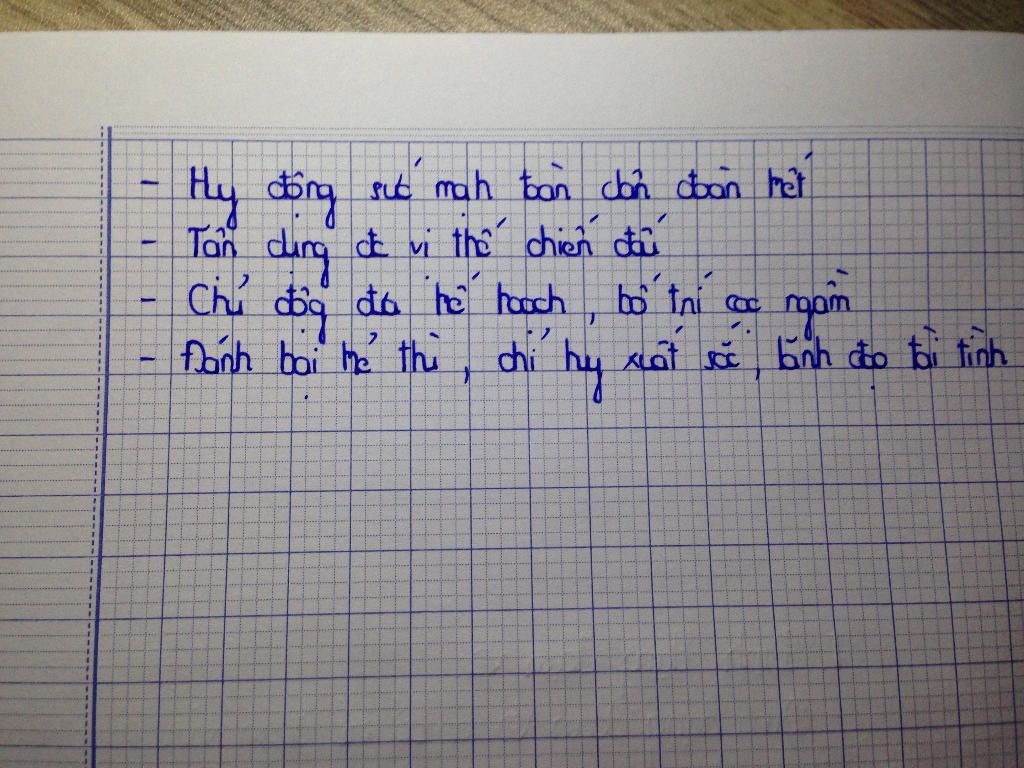 - Hy động sức mạh toàn dân đoàn kết
- Tận dụng đc vị thế chiến đấu
- Chủ động đưa kế hoạch, bố trí cọc ngầm
- Đánh bại kẻ thù, chỉ huy xuất sắc, lãnh đạo tài tình